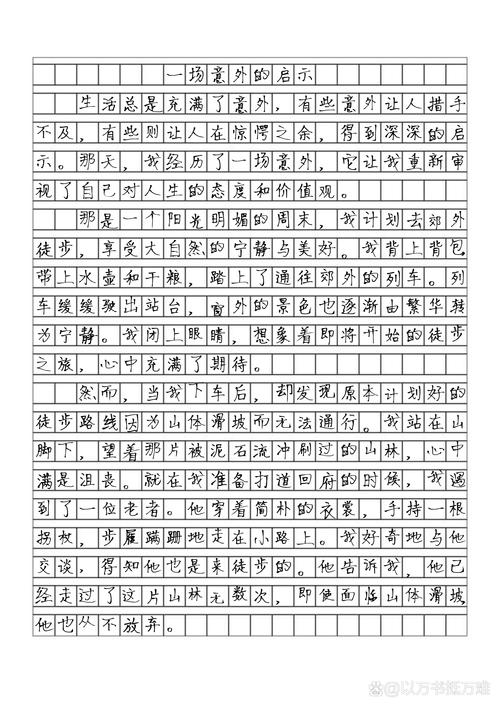 一场意外的启示
生活总是充满了意外，有些意外让人措手
不及，有些则让人在惊愕之余，得到深深的启
示。那天，我经历了一场意外，它让我重新审
视了自己对人生的态度和价值观。
那是一个阳光明媚的周末，我计划去郊外
徒步，享受大自然的宁静与美好。我背上背包
带上水壶和干粮，踏上了通往郊外的列车。列
车缓缓驶出站台，窗外的景色也逐渐由繁华转
为宁静。我闭上眼睛，想象着即将开始的徒步
之旅，心中充满了期待。
然而，当我下车后，却发现原本计划好的
徒步路线因为山体滑坡而无法通行。我站在山
脚下，望着那片被泥石流冲刷过的山林，心中
满是沮丧。就在我准备打道回府的时候，我遇
到了一位老者。他穿着简朴的衣裳，手持一根
拐杖，步履蹒跚地走在小路上。我好奇地与他
交谈，得知他也是来徒步的。他告诉我，他已
经走过了这片山林无数次，即使面临山体滑坡
他也从不放弃。
@以万书抵万难